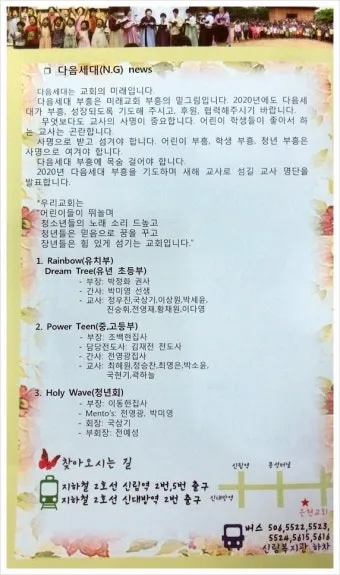 □ 다음세대(N.G) news
다음세대는 교회의 미래입니다.
다음세대 부흥은 미래교회 부흥의 밑그림입니다. 2020년에도 다음세
대가 부흥, 성장되도록 기도해 주시고, 후원, 협력해주시기 바랍니다.
무엇보다도 교사의 사명이 중요합니다. 어린이 학생들이 좋아서 하
는 교사는 곤란합니다.
사명으로 받고 섬겨야 합니다. 어린이 부흥, 학생 부흥, 청년 부흥은
사명으로 여겨야 합니다.
다음세대 부흥에 목숨 걸어야 합니다.
2020년 다음세대 부흥을 기도하며 새해 교사로 섬길 교사 명단을
발표합니다.
"우리교회는
어린이들이 뛰놀며
청소년들의 노래 소리 드높고
청년들은 믿음으로 꿈을 꾸고
장년들은 힘 있게 섬기는 교회입니다."
1. Rainbow(유치부)
Dream Tree(유년 초등부)
- 부장: 박정화 권사
- 간사: 박미영 선생
- 교사: 정우진,국상기,이상원,박세윤,
진승휘,전영재,황재원,이다영
2. Power Teen(중,고등부)
- 부장: 조백현집사
- 담당전도사: 김재전 전도사
- 간사: 전영광집사
- 교사: 최혜원,정승찬,최영은,박소윤,
국현기,곽하늘
3. Holy Wave(청년회)
- 부장: 이동현집사
- Mento's: 전영광, 박미영
- 회장: 국상기
- 부회장: 전예성
찾아오시는 길
지하철 2호선 신림역 2번,5번 출구
지하철 2호선 신대방역 2번 출구
신림역
문성터널
신대방역
은현교회
버스 506,5522,5523,
5524,5615,5616
신림복지관 하차